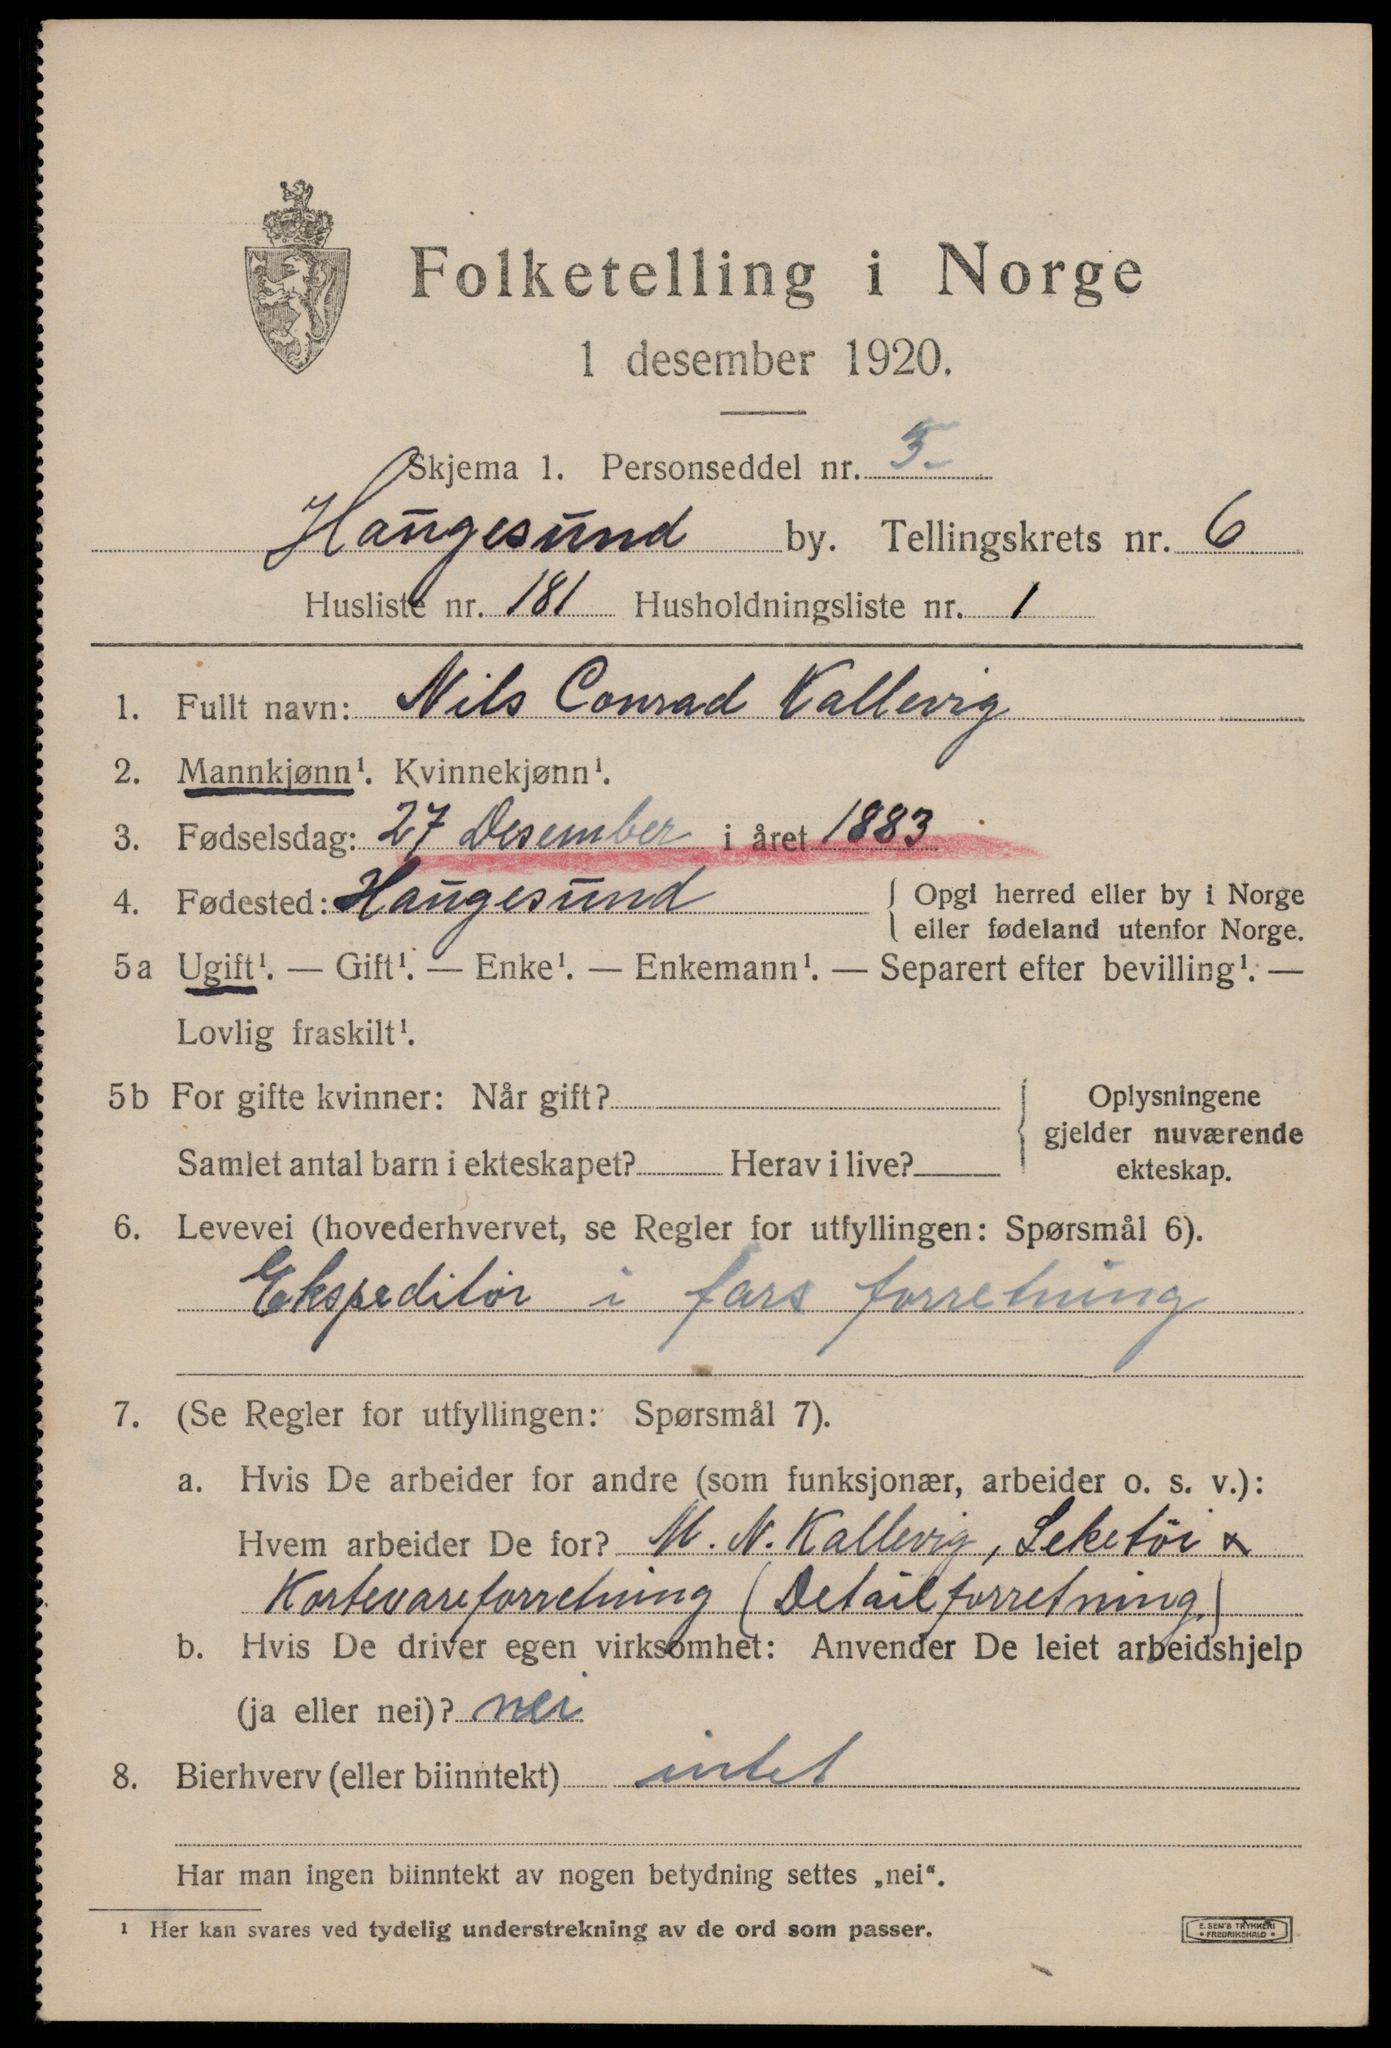 Folketelling i Norge
1 desember 1920.
Skjema 1. Personseddel nr.
Haugesund by. Tellingskrets nr. 6
Husliste nr. 181 Husholdningsliste nr. 1
1. Fullt navn: Nils Conrad Kallevig
2. Mannkjønn¹. Kvinnekjønn¹.
3. Fødselsdag: 27 Desember i året 1883
4. Fødested: Haugesund { Opgi herred eller by i Norge
eller fødeland utenfor Norge.
5a Ugift¹. — Gift¹. — Enke¹. — Enkemann¹. — Separert efter bevilling¹. —
Lovlig fraskilt¹.
5b For gifte kvinner: Når gift? { Oplysningene
gjelder nuværende
Samlet antal barn i ekteskapet? Herav i live? ekteskap.
6. Levevei (hovederhvervet, se Regler for utfyllingen: Spørsmål 6).
Ekspeditör i fars forretning
7. (Se Regler for utfyllingen: Spørsmål 7).
a. Hvis De arbeider for andre (som funksjonær, arbeider o. s. v.):
Hvem arbeider De for? M. N. Kallevig, Leketöi &
Kortevareforretning (Detailforretning.)
b. Hvis De driver egen virksomhet: Anvender De leiet arbeidshjelp
(ja eller nei)? nei
8. Bierhverv (eller biinntekt) intet
Har man ingen biinntekt av nogen betydning settes „nei“.
¹ Her kan svares ved tydelig understrekning av de ord som passer.
E. SEM'S TRYKKERI
* FREDRIKSHALD *